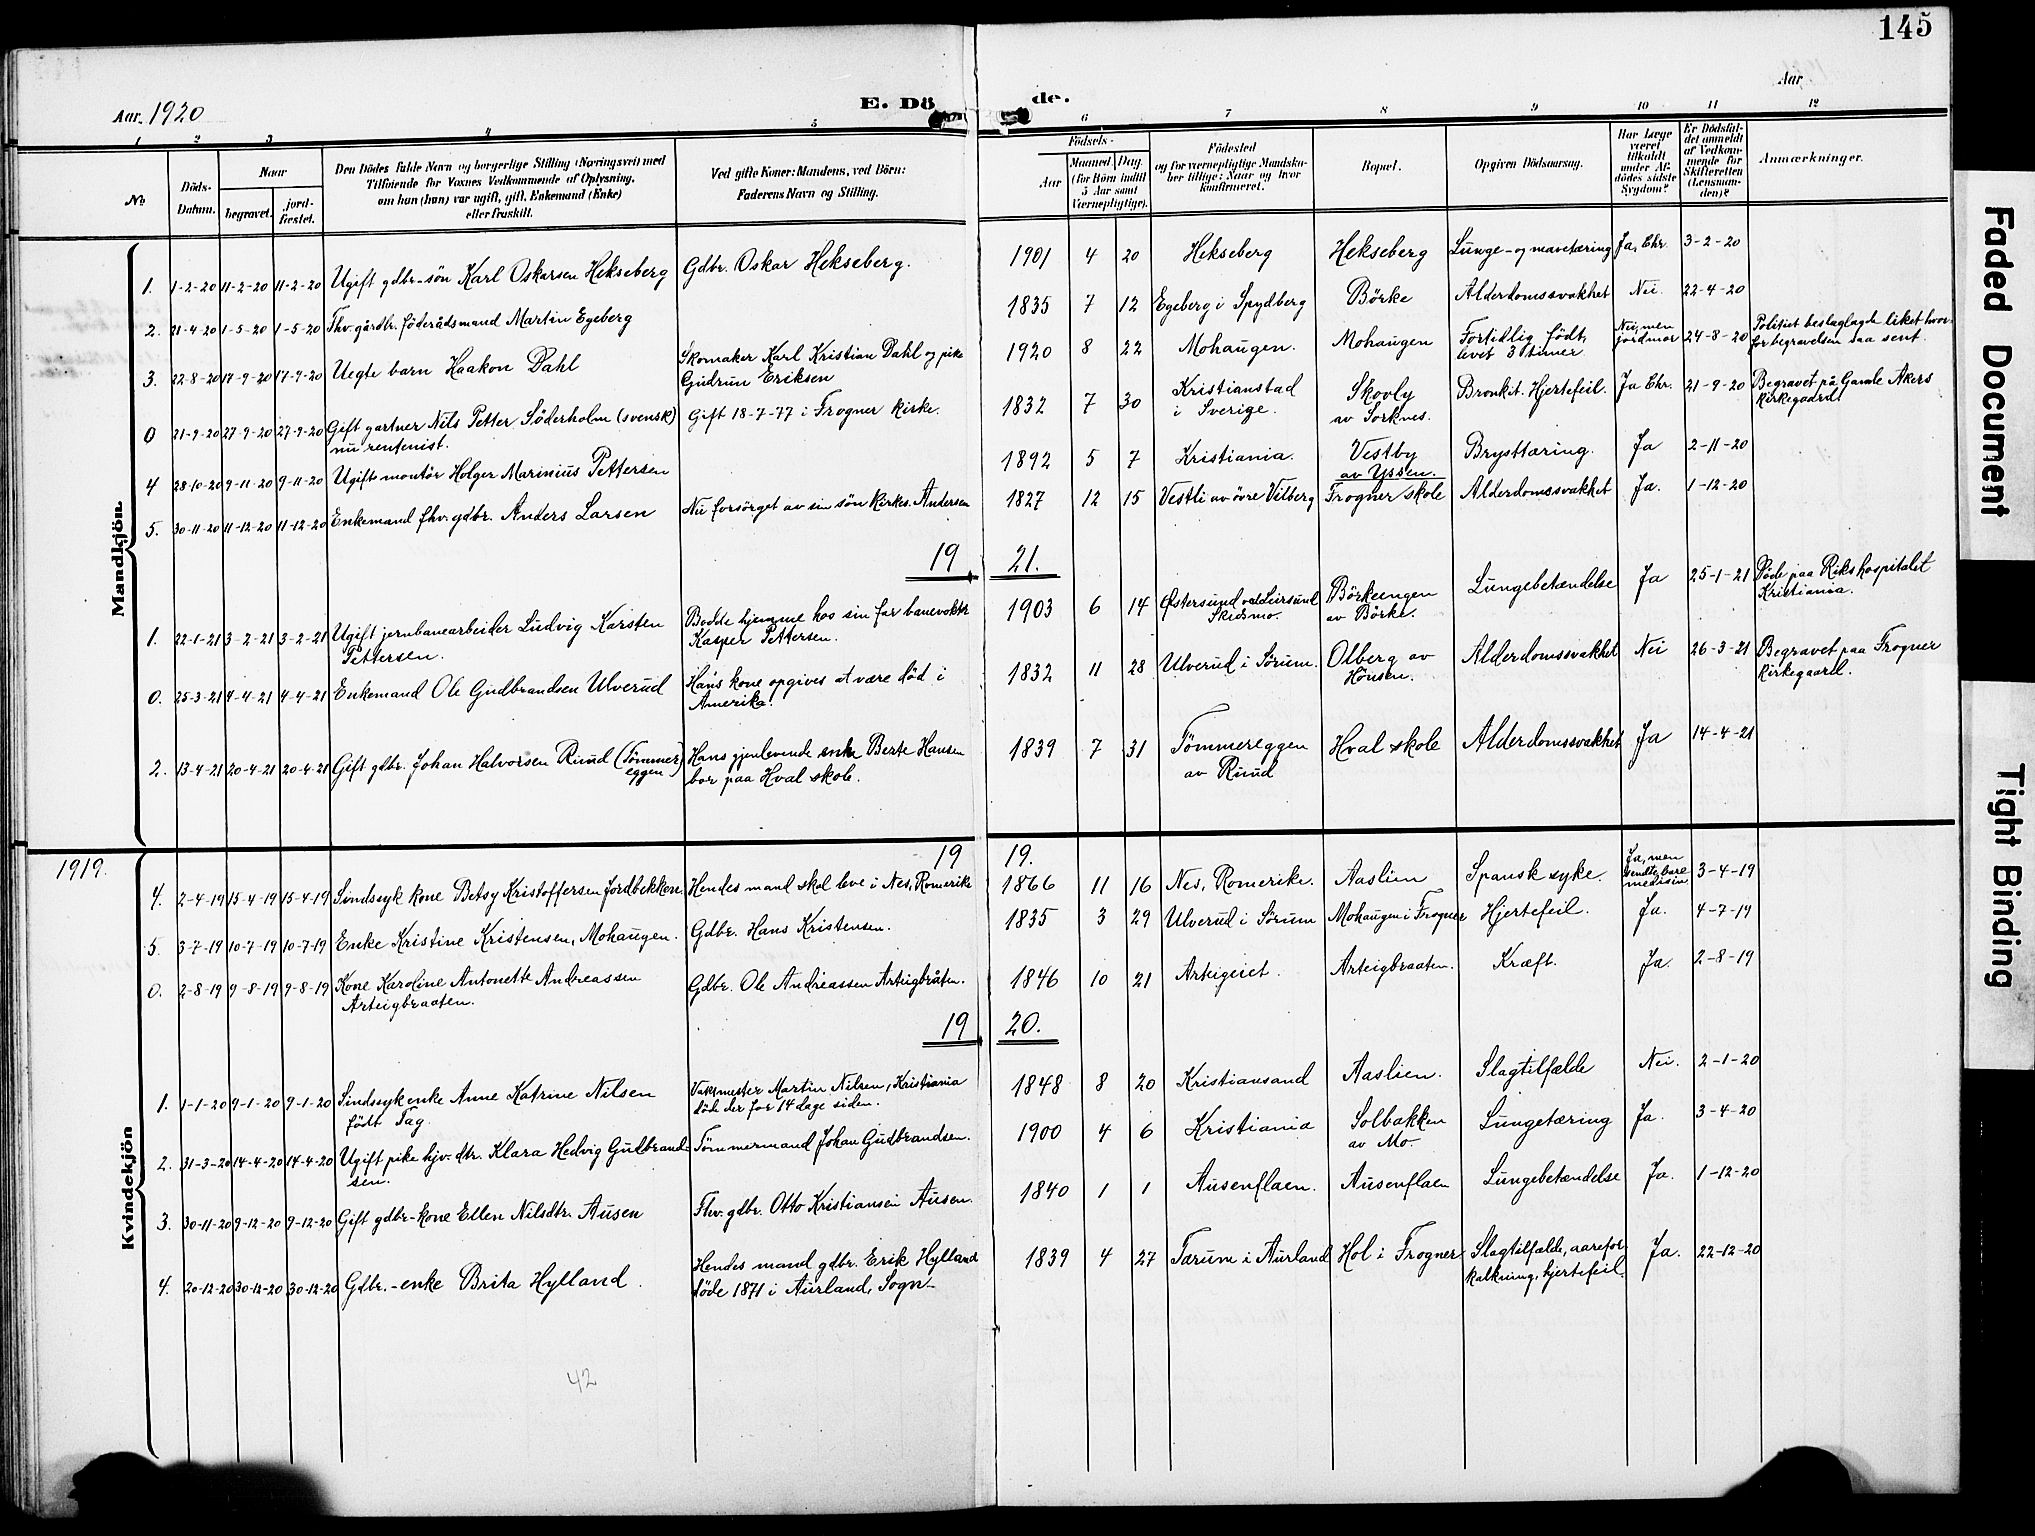 145
Aar 1920
E. Dö
de.
Aar
1 2 3 4 5 6 7 8 9 10 11 12
No
Döds-
Datum.
Naar
begravet.
jord-
fæstet.
Den Dödes fulde Navn og borgerlige Stilling (Næringsvei) med
Tilföiende for Voxnes Vedkommende af Oplysning,
om han (hun) var ugift, gift, Enkemand (Enke)
eller fraskilt.
Ved gifte Koner: Mandens, ved Börn:
Faderens Navn og Stilling.
Födsels-
Aar
Maaned Dag
(for Börn indtil
5 Aar samt
Værnepligtige).
Födested
og for værnepligtige Mandska-
ber tillige: Naar og hvor
konfirmeret.
Bopæl.
Opgiven Dödsaarsag.
Har Læge
været
tilkaldt
under Af-
dödes sidste
Sygdom?
Er Dödsfal-
det anmeldt
af Vedkom-
mende for
Skifteretten
(Lensman-
den)?
Anmærkninger.
Mandkjön.
1. 1-2-20 11-2-20 11-2-20 Ugift gdbr.-sön Karl Oskarsen Hekseberg Gdbr. Oskar Hekseberg. 1901 4 20 Hekseberg Hekseberg Lunge- og mavetæring Ja, Chr. 3-2-20
2. 21-4-20 1-5-20 1-5-20 Fhv. gårdbr. föderådsmand Martin Egeberg 1835 7 12 Egeberg i Spydberg Börke Alderdomssvakhet Nei. 22-4-20
3. 22-8-20 17-9-20 17-9-20 Uegte barn Haakon Dahl Skomaker Karl Kristian Dahl og pike 1920 8 22 Mohaugen. Mohaugen Fortidlig födt, Nei, men 24-8-20 Politiet beslaglagde liket hvor-
Gudrun Eriksen levet 3 timer jordmor for begravelsen saa sent.
0 21-9-20 27-9-20 27-9-20 Gift gartner Nils Petter Söderholm (svensk) Gift 18-7-77 i Frogner kirke. 1832 7 30 Kristianstad Skovly Bronkit. Hjertefeil. Ja Chr. 21-9-20 Begravet på Gamle Akers
nu rentenist. i Sverige. av Sorknes. kirkegaard
4 28-10-20 9-11-20 9-11-20 Ugift montör Holger Marinius Pettersen 1892 5 7 Kristiania. Vestby Brysttæring. Ja 2-11-20
av Yssen.
5. 30-11-20 11-12-20 11-12-20 Enkemand fhv. gdbr. Anders Larsen Nu forsörget av sin sön kirkes. Andersen 1827 12 15 Vestli av övre Vilberg Frogner skole Alderdomssvakhet Ja. 1-12-20
19 21.
1. 22-1-21 3-2-21 3-2-21 Ugift jernbanearbeider Ludvig Karsten Bodde hjemme hos sin far banevokter 1903 6 14 Østersund ved Leirsund Börkeengen Lungebetændelse Ja 25-1-21 Döde paa Rikshospitalet
Pettersen. Kasper Pettersen. Skedsmo. av Börke. Kristiania.
0. 25-3-21 4-4-21 4-4-21 Enkemand Ole Gudbrandsen Ulverud Hans kone opgives at være död i 1832 11 28 Ulverud i Sörum. Olberg av Alderdomssvakhet Nei 26-3-21 Begravet paa Frogner
Amerika. Hönsen. kirkegaard.
2. 13-4-21 20-4-21 20-4-21 Gift gdbr. Johan Halvorsen Ruud (Tömmer- Hans gjenlevende enke Berte Hansen 1839 7 31 Tömmereggen Hval skole Alderdomssvakhet Ja 14-4-21
eggen) bor paa Hval skole. av Ruud
1919. 19 19.
Kvindekjön
4. 2-4-19 15-4-19 15-4-19 Sindssyk kone Betsy Kristoffersen Jordbekken Hendes mand skal leve i Nes, Romerike 1866 11 16 Nes, Romerike. Aaslien Spansk syke. Ja, men sendte bare medisin 3-4-19
5. 3-7-19 10-7-19 10-7-19 Enke Kristine Kristensen, Mohaugen. Gdbr. Hans Kristensen. 1835 3 29 Ulverud i Sörum Mohaugen i Frogner Hjertefeil. Ja. 4-7-19
0. 2-8-19 9-8-19 9-8-19 Kone Karoline Antonette Andreassen Gdbr. Ole Andreassen Arteigbråten. 1846 10 21 Arteigeiet. Arteigbraaten. Kræft. Ja. 2-8-19
Arteigbraaten.
19 20.
1. 1-1-20 9-1-20 9-1-20 Sindssyk enke Anne Katrine Nilsen Vaktmester Martin Nilsen, Kristiania 1848 8 20 Kristiansand Aaslien. Slagtilfælde Nei. 2-1-20
födt Tag död der for 14 dage siden.
2. 31-3-20 14-4-20 14-4-20 Ugift pike hjv. dtr. Klara Hedvig Gulbrand- Tömmermand Johan Gudbrandsen. 1900 4 6 Kristiania Solbakken Lungetæring Ja. 3-4-20
sen. av Mo.
3. 30-11-20 9-12-20 9-12-20 Gift gdbr-kone Ellen Nilsdtr. Ausen Fhv. gdbr. Otto Kristiansen Ausen. 1840 1 1 Ausenflaen. Ausenflaen Lungebetændelse Ja. 1-12-20
4. 20-12-20 30-12-20 30-12-20 Gdbr.-enke Brita Hylland. Hendes mand gdbr. Erik Hylland 1839 4 27 Tærum i Aurland Hol i Frogner Slagtilfælde, aarefor- Ja. 22-12-20
döde 1871 i Aurland, Sogn- kalkning, hjertefeil.
42
Faded Document
Tight Binding